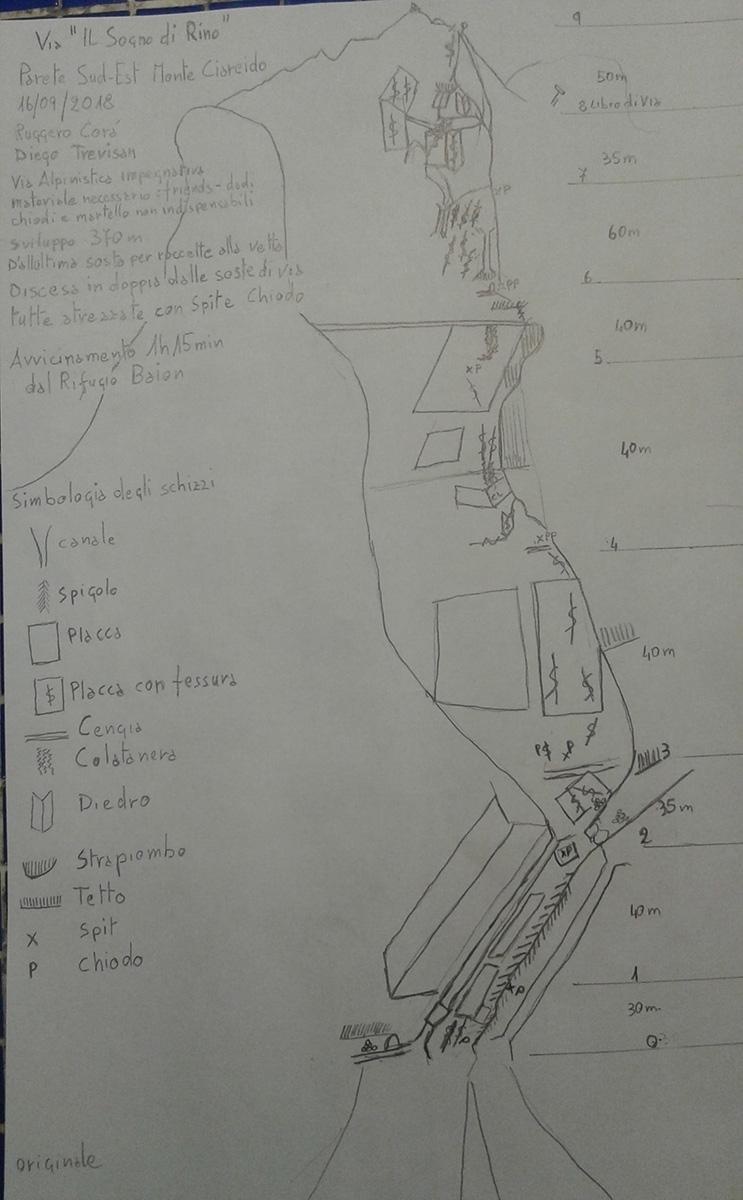 Via "IL Sogno di Rino"
Parete Sud-Est Monte Ciareido
16/09/2018
Ruggero Corá
Diego Trevisan
Via Alpinistica impegnativa
materiale necessario: friends - dadi
chiodi e martello non indispensabili
sviluppo 370 m
Dall'ultima sosta per roccette alla vetta
Discesa in doppia dalle soste di via
tutte atrezzate con Spit e Chiodo
Avvicinamento 1h 15 min
dal Rifugio Baion
Simbologia degli schizzi
canale
Spigolo
Placca
Placca con fessura
Cengia
Colatanera
Diedro
Strapiombo
Tetto
X Spit
P Chiodo
originale
9
50m
8 Libro di Via
35m
7
60m
6
40m
5
40m
4
40m
3
35m
2
40m
1
30m
0
P
XP
XPP
XP
XPP
P
P
XP
XP
P